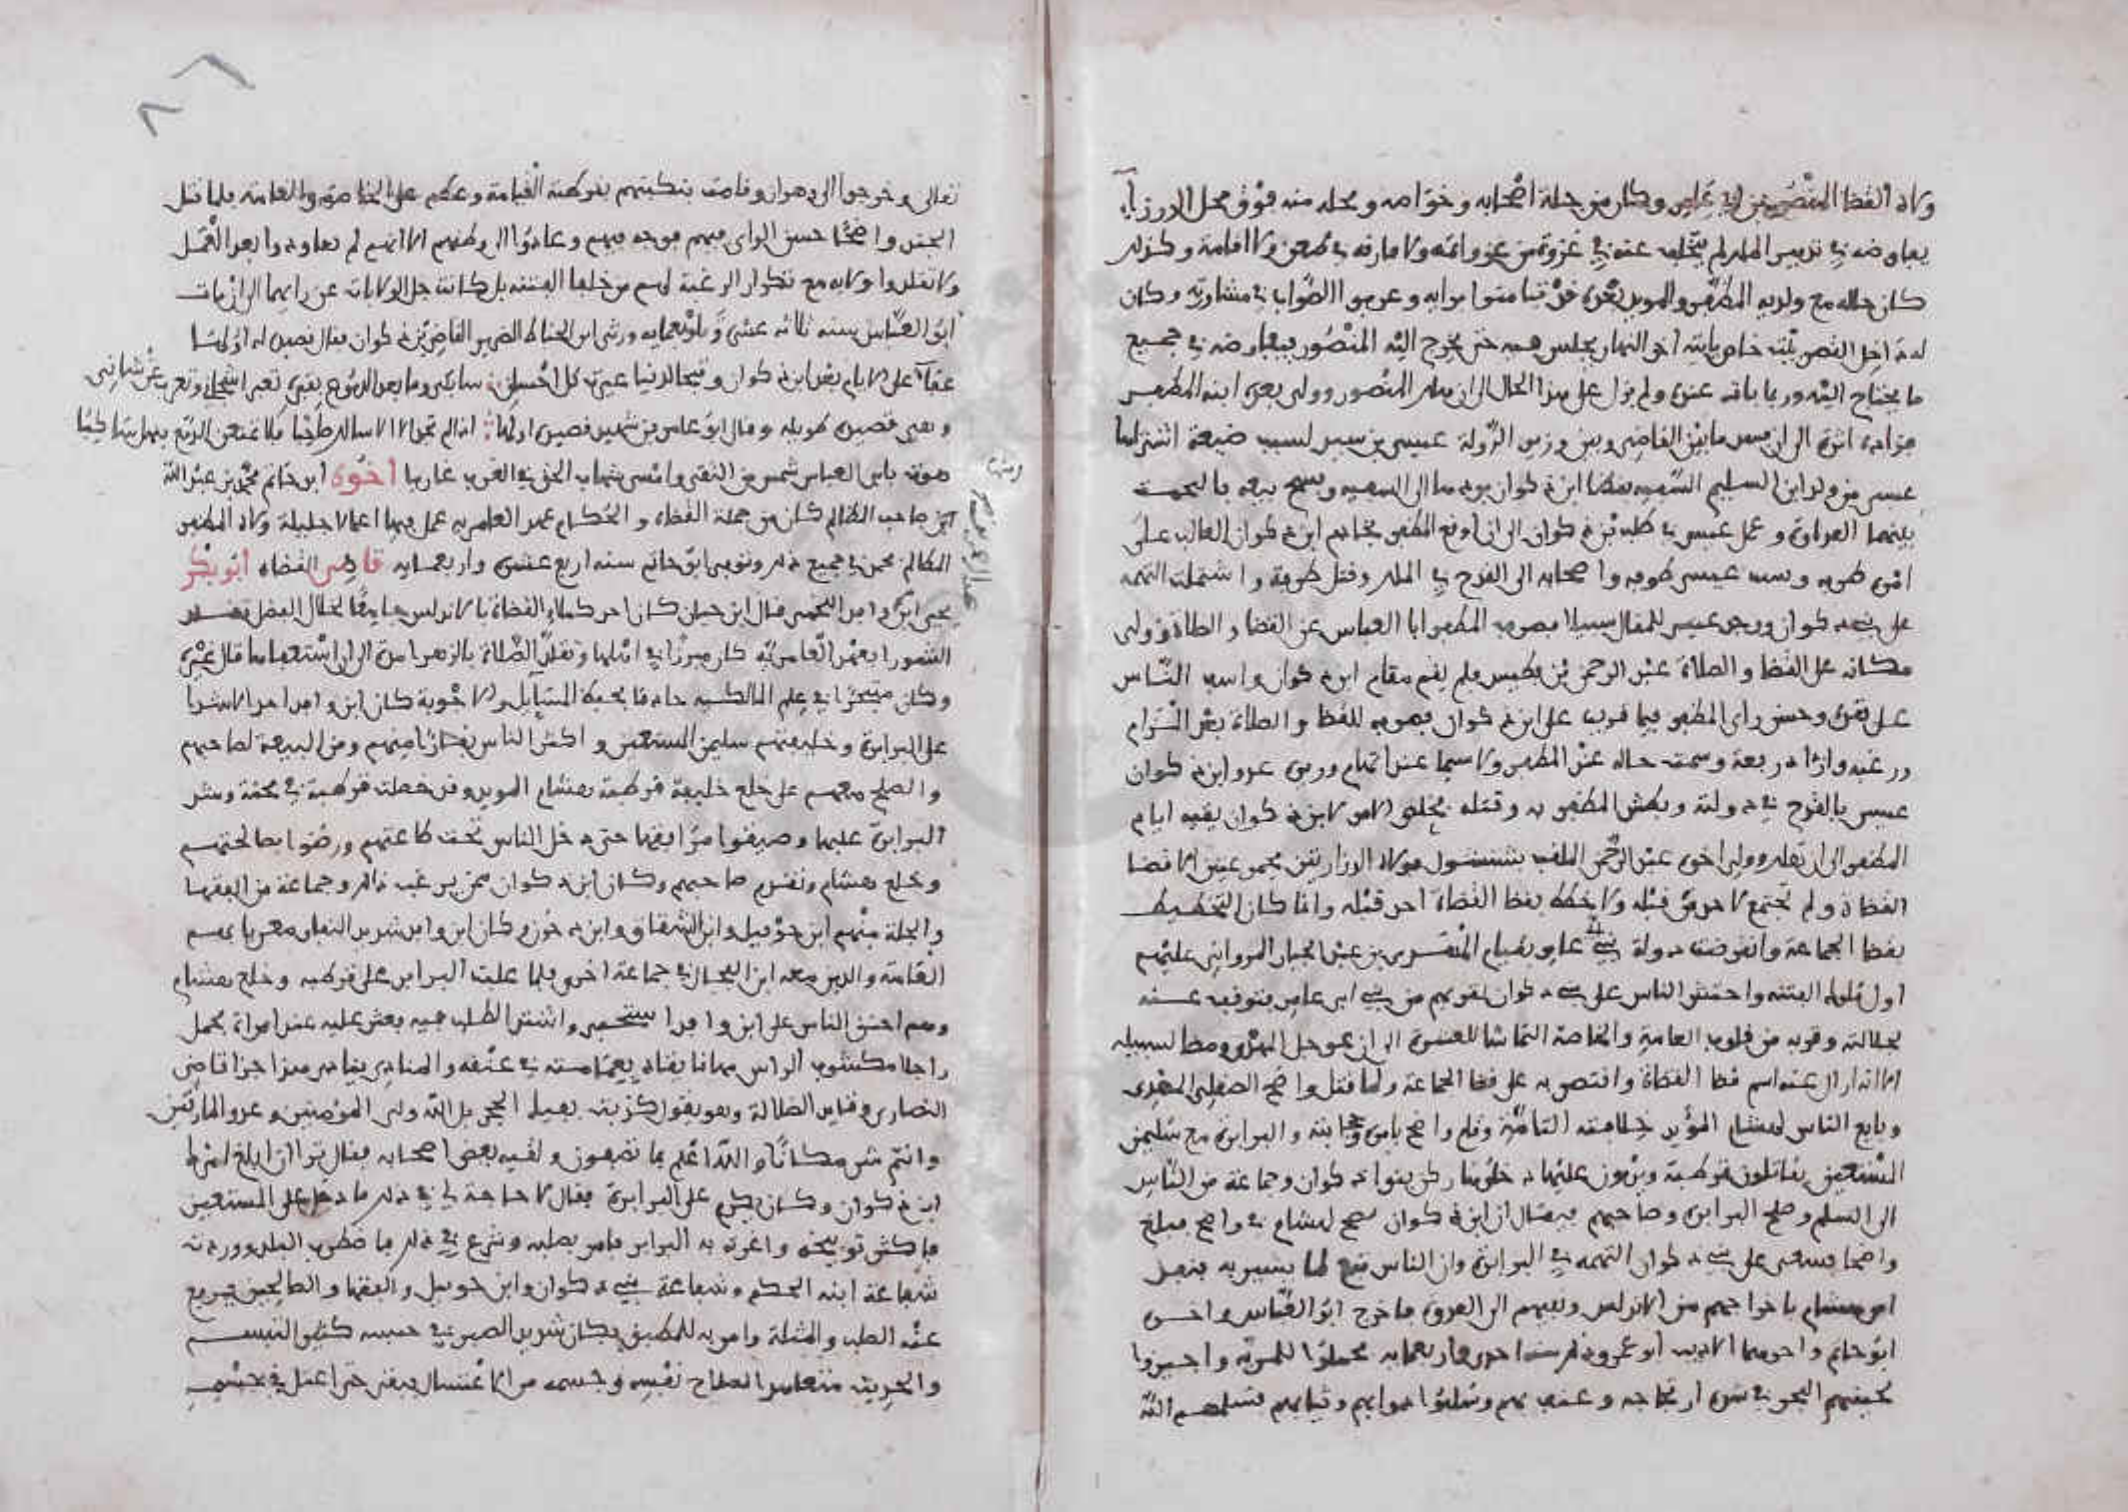 ولاه القضا المنصور بن ابي عامر وكان من جملة اصحابه وخواصه ومحله منه فوق محل الوزرا
يفاوضه في تدبير الملك لم يتخلف عنه في غزوة من غزواته ولا فارقه في ظعن ولا اقامة وكذلك
كان حاله مع ولديه المظفر والمويد بعده قد تيامنوا برايه وعرفوا الصواب في مشاورته وكان
له داخل القصر بيت خاص ياتيه اخر النهار يجلس فيه حتى يخرج اليه المنصور فيفاوضه في جميع
ما يحتاج اليه وربما بات عنده ولم يزل على هذا الحال الى ان هلك المنصور وولي بعده ابنه المظفر
فزاده اثرة الى ان فسد ما بين القاضي وبين وزير الدولة عيسى بن سعيد لسبب ضيعة اشتراها
عيسى من ولد ابن السليم السفيه
بينهما العداوة وعمل عيسى في طلب ابن ذكوان الى ان اوقع المظفر بخادم ابن ذكوان الغالب على
امره طرفه ونسب عيسى طرفه واصحابه الى القدح في الملك وقتل طرفة واشتملت التهمه
على ابن ذكوان ووجد عيسى للمقال سبيلا فصرف المظفر ابا العباس عن القضا والصلاة وولى
مكانه على القضا والصلاة عبد الرحمن بن فطيس فلم يقم مقام ابن ذكوان واسف الناس
على فقده وحسن راي المظفر فيما قريب على ابن ذكوان فصرفه للقضا والصلاة بعد التزام
ورغبه وازداد رفعة وسمت حاله عند المظفر ولا سيما عند اتهام وزيره عدو ابن ذكوان
عيسى بالقدح في دولته وبطش المظفر به وقتله فخلص الامر لابن ذكوان بقيه ايام
المظفر الى ان هلك وولي اخوه عبد الرحمن الملقب بشنشول فولاه الوزارتين مجموعتين الى قضا
القضاة ولم تجتمع لاحد قبله ولا خطط بقضا القضاة احد قبله وانما كان التخطيط
بقضا الجماعة وانقرضت دولة بني عامر بقيام المهدي بن عبد الجبار المرواني عليهم
اول ملوك الفتنه واحتشد الناس على بني ذكوان لقربهم من بني ابي عامر فتوقف عنه
لجلالته وقربه من قلوب العامة والخاصة
الا انه ازال عنه اسم قضا القضاة واقتصر به على قضا الجماعة ولما قتل واضح الصقلبي المهدي
وبايع الناس لهشام المويد خلافته الثانية وقام واضح بامر حجابته والبرابرة مع سليمن
المستعين يقاتلون قرطبة ويرون عليها دخلوها ركن بنوا ذكوان وجماعة من الناس
الى السلم وصلح البرابرة وصاحبهم فيقال ان ابن ذكوان نصح لهشام في واضح فبلغ
واضحا فسعى على بني ذكوان التهمه في البرابرة وان الناس تبع لما يشير به فتعجل
امر هشام باخراجهم من الاندلس ونفيهم الى العدوة فاخرج ابو العباس واخوه
ابو حاتم واخوهما الاديب ابو عمر وذلك سنه احدى واربعمايه فحملوا للمرية واجيزوا
بحينهم البحر في شدة ارتجاجه وعنف بهم وسلبوا دوابهم وثيابهم فسلمهم الله
تعالى وخرجوا الى وهران وقامت بنكبتهم بقرطبة القيامة وعظم على الخاصة والعامة فلما قتل
الجند واضحا حسن الراي فيهم فوجه فيهم وعادوا الى وطنهم الا انهم لم يعاودوا بعد العمل
ولا تقلدوا ولايه مع تكرار الرغبة لهم من خلفا الفتنه بل كانت جل الولايات عن رايهما الى ان مات
ابو العباس سنه ثلاثه عشر واربعمايه ورثى ابن الحناط الضرير القاضي ابن ذكوان فقال قصيدا له اولها
عفا على الايام بعد ابن ذكوان وقبحا لدنيا غيرت كل احسان
وهي قصيدة طويله وقال ابو عامر بن شهيد قصيدة اولها
هوت بابي العباس شمس من التقى وامسى شهاب الحق في الغرب غاربا اخوه ابو حاتم محمد بن عبد الله
ابن صاحب المظالم كان من جملة القضاة والحكام عهد العامريه عمل فيها اعمالا جليلة ولاه المظفر
المظالم فحمد في جميع ذلك وتوفي ابو حاتم سنه اربع عشرة واربعمايه قاضي القضاه ابو بكر
يحيى ابن وافد اللخمي قال ابن حيان كان احد كملاء القضاة بالاندلس جامعا لخلال الفضل تقلد
الشورا بعهد العامرية كان مبرزا في اهلها وتقلد الصلاة بالزهرا مدة الى ان استعفا منها قال غيره
وكان متبحرا في علم المالكيه حاذقا بحفظ المسايل والاجوبة كان ابن وافد احد الاشدا
على البرابرة وخليفتهم سليمن المستعين واكثر الناس نفارا منهم ومن البيعة لصاحبهم
والصلح معهم على خلع خليفة قرطبة هشام المويد وقد حصلت قرطبة في محنة وشد
البرابرة عليها وضيقوا مرافقها حتى دخل الناس تحت طاعتهم ورضوا بمصالحتهم
وخلع هشام وتقديم صاحبهم وكان ابن ذكوان ممن يرغب ذلك وجماعة من الفقها
والجلة منهم ابن حوبيل وابن الشقاق وابن دحون وكان ابن وافد شديد النفار مغريا بهم
العامة والدين معه ابن البجال في جماعة اخرى فلما غلبت البرابر على قرطبه وخلع هشام
وهم اختفى الناس على ابن وافد استخفى واشتد الطلب فيه فعثر عليه عند امراة فحمل
راجلا مكشوف الراس مهانا يقاد بعمامته في عنقه والمنادي ينادي هذا جزا قاضي
النصارى وقايد الضلالة وهو يقول كذبت بفيك الحجر بل الله ولي المومنين وعدو المارقين
وانتم شر مكانا والله اعلم بما تصفون ولقيه بعض اصحابه فقال ترا ان ابلغ امرك
ابن ذكوان وكان يكرم على البرابرة فقال لا حاجة لي في ذلك فادخل على المستعين
فاكثر توبيخه واغرته به البرابر فامر بصلبه وشرع في ذلك فاضطرب البلد ووردت
شفاعة ابنه الحكم وشفاعة بني ذكوان وابن حوبيل والفقها والصالحين فرفع
عنه الصلب والمثلة وامر به للمطبق فكان شديد الصبر في حبسه كثير التبسم
والحديث متعاهدا اصلاح نفسه وجسمه من الاغتسال فبقي حتى اعتل في حبسه